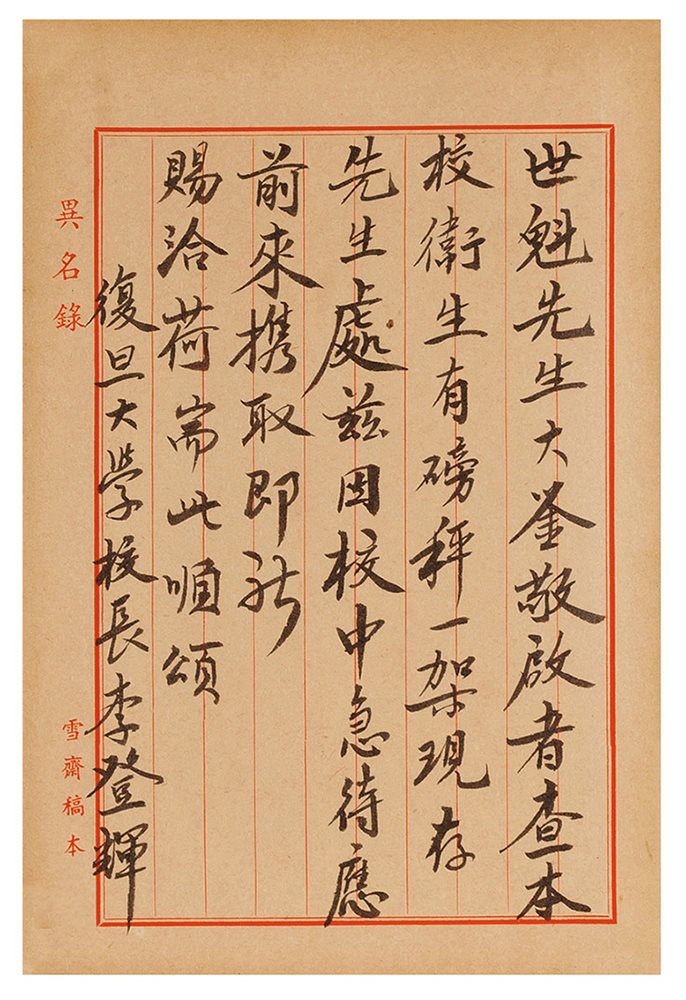 世魁先生大鉴敬啟者查本
校衛生有磅秤一架現存
先生處兹因校中急待應
前來攜取即祈
賜洽荷耑此順頌
復旦大學校長李登輝
異名錄
雪齋稿本